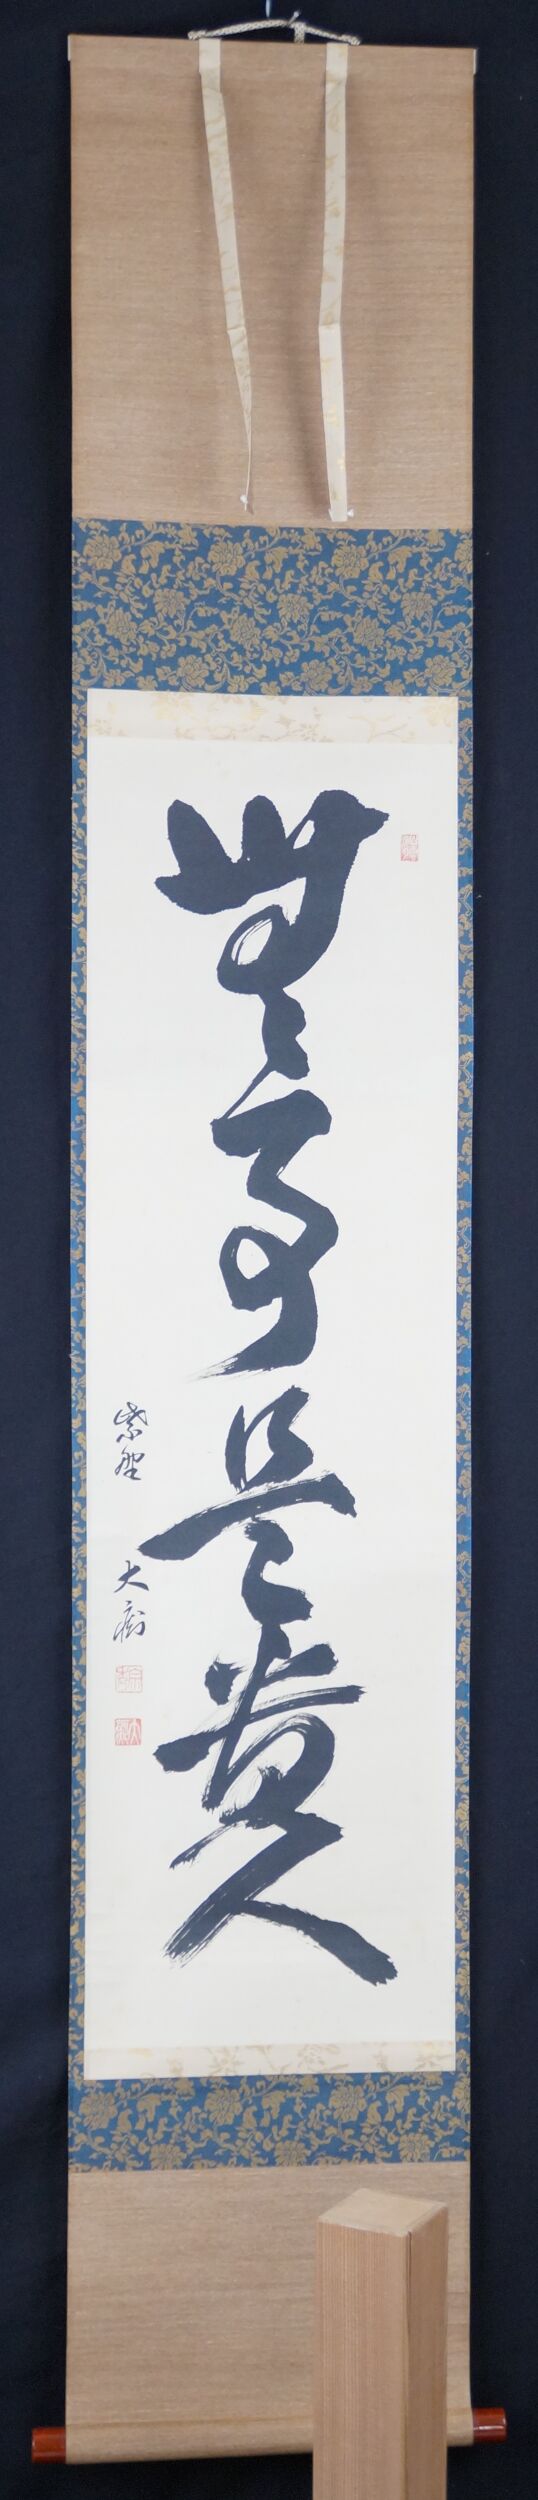 無事是貴人
紫野 大樹